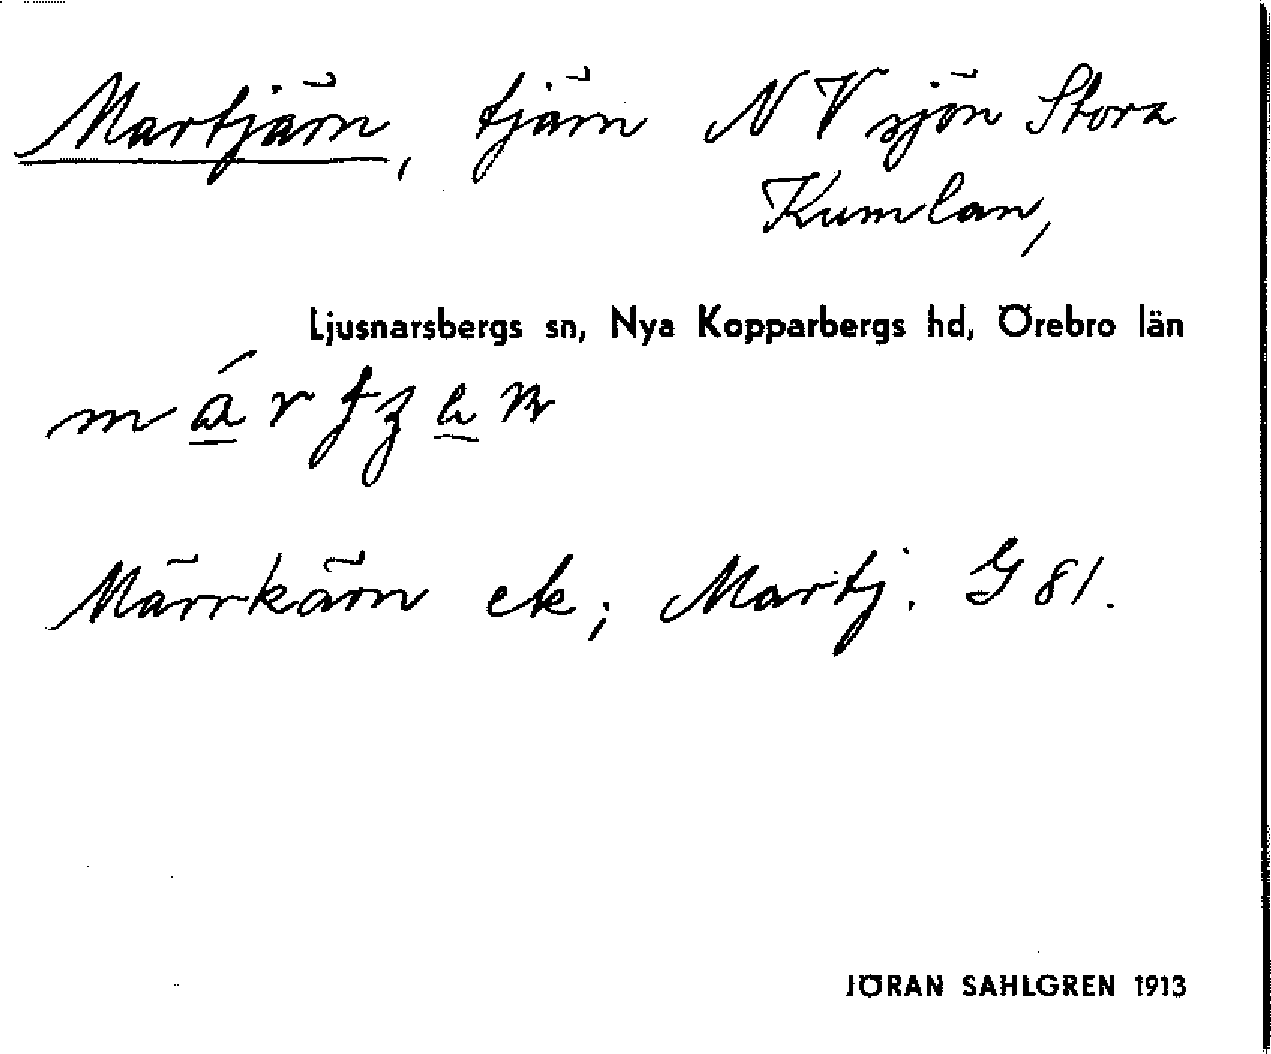 Martjärn, tjärn NV sjön Stora
Kumlan,
Ljusnarsbergs sn, Nya Kopparbergs hd, Örebro län
Märrkärn ek; Martj. G 81.
JÖRAN SAHLGREN 1913